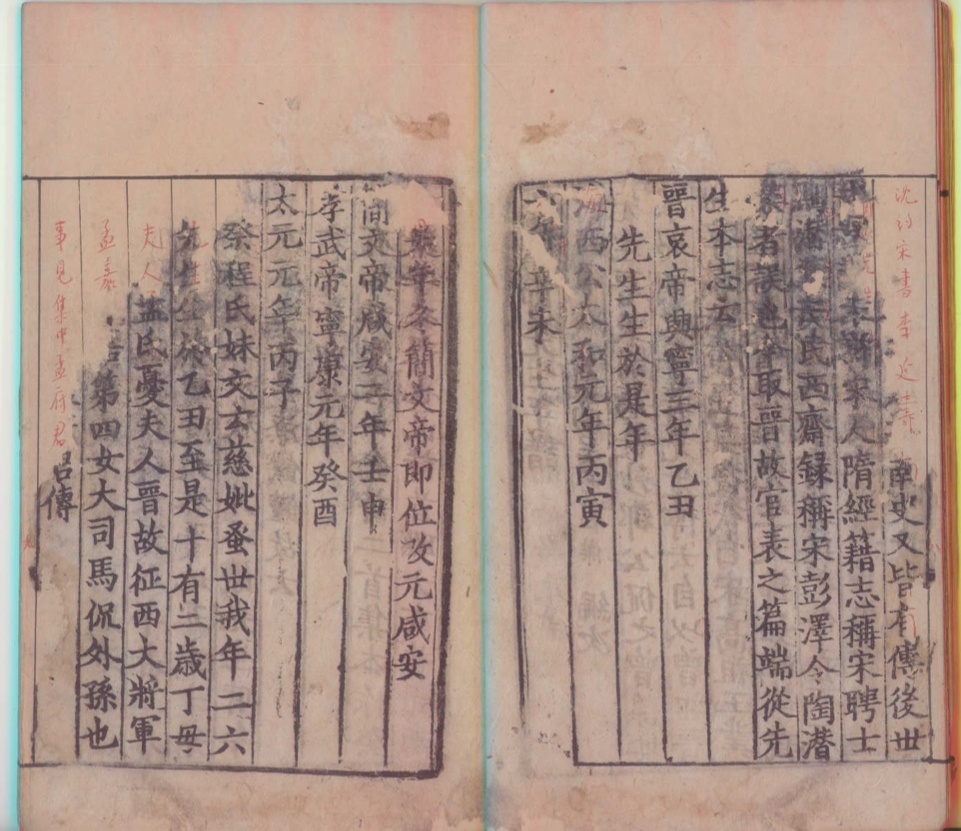 沈約宋書李延壽南史又皆有傳後世
宋人隋經籍志稱宋聘士
吳氏西齋録稱宋彭澤令陶潜
集者誤也今取晉故官表之篇端從先
生本志云
晉哀帝興寧三年乙丑
先生生於是年
海西公太和元年丙寅
六年辛未
是年冬簡文帝即位改元咸安
簡文帝咸安二年壬申
孝武帝寧康元年癸酉
太元元年丙子
祭程氏妹文云慈妣蚤世我年二六
先生生於乙丑至是十有二歲丁母
夫人孟氏憂夫人晉故征西大將軍
孟嘉第四女大司馬侃外孫也
事見集中孟府君傳